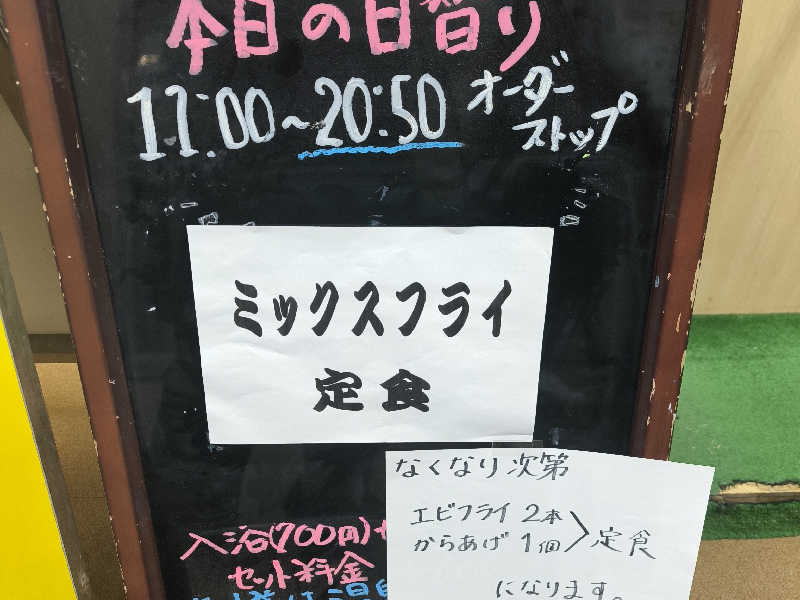 本日の日替り
11:00~20:50 オーダー
ストップ
ミックスフライ
定食
なくなり次第
エビフライ 2本
からあげ 1個 > 定食
になります。
入浴(700円)
セット料金